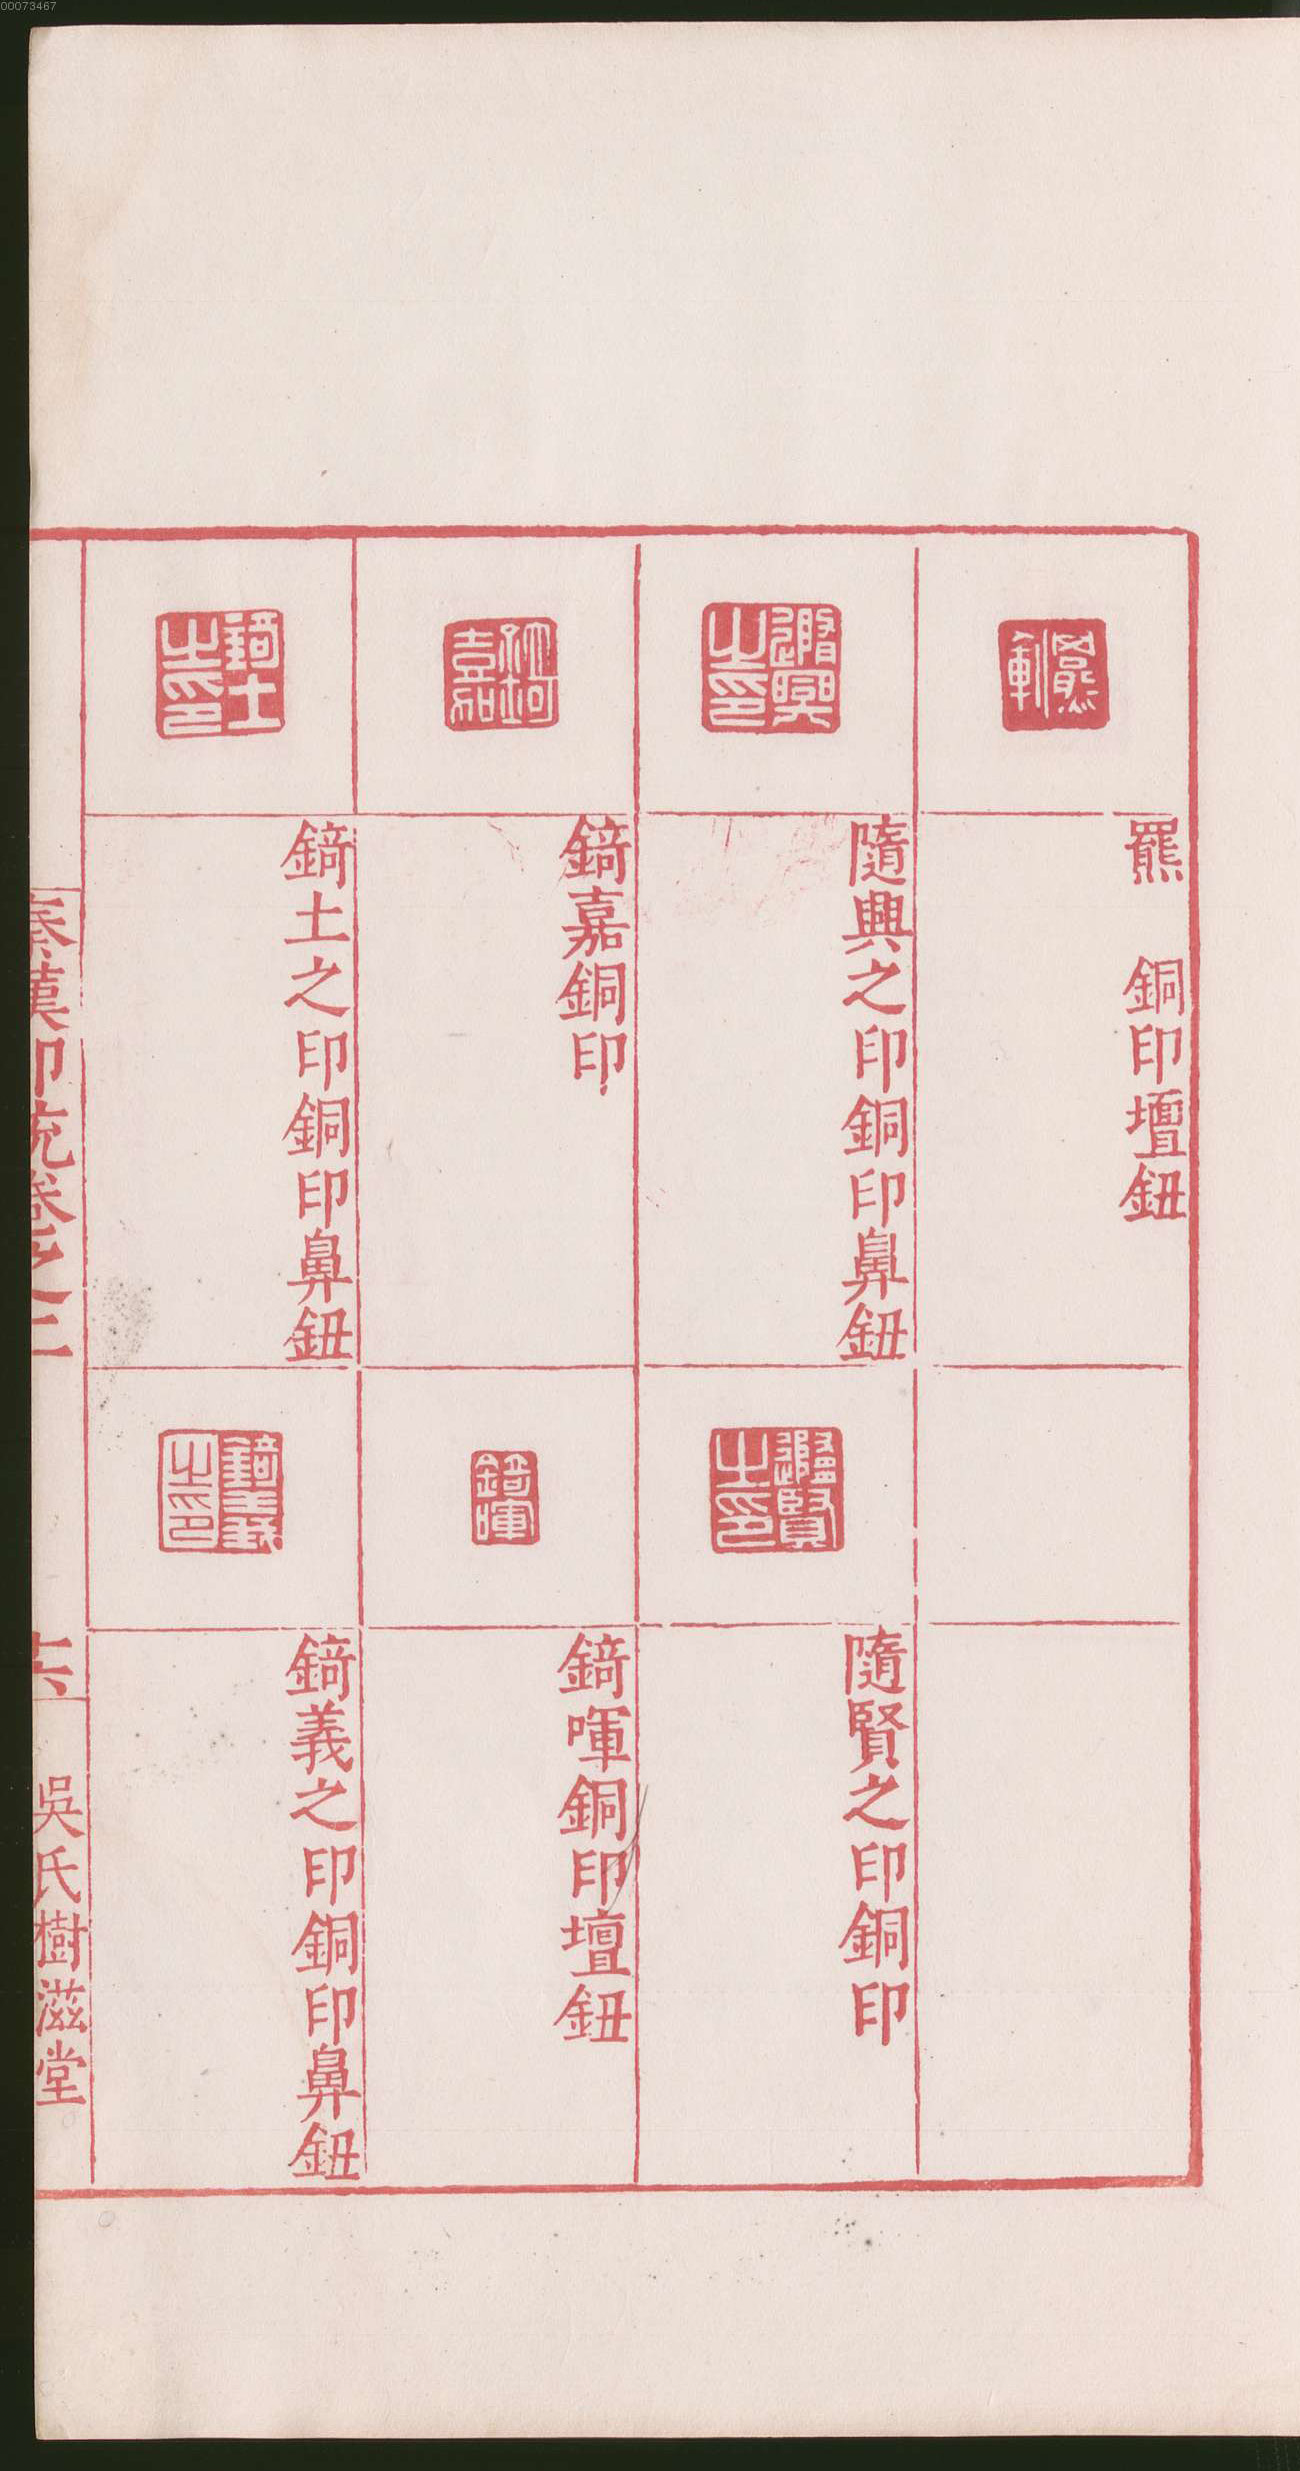 00073467
羆　銅印壇鈕
隨興之印銅印鼻鈕
隨賢之印銅印
錡嘉銅印
錡喗銅印壇鈕
錡土之印銅印鼻鈕
錡義之印銅印鼻鈕
秦漢印統卷之二
十六
吳氏樹滋堂